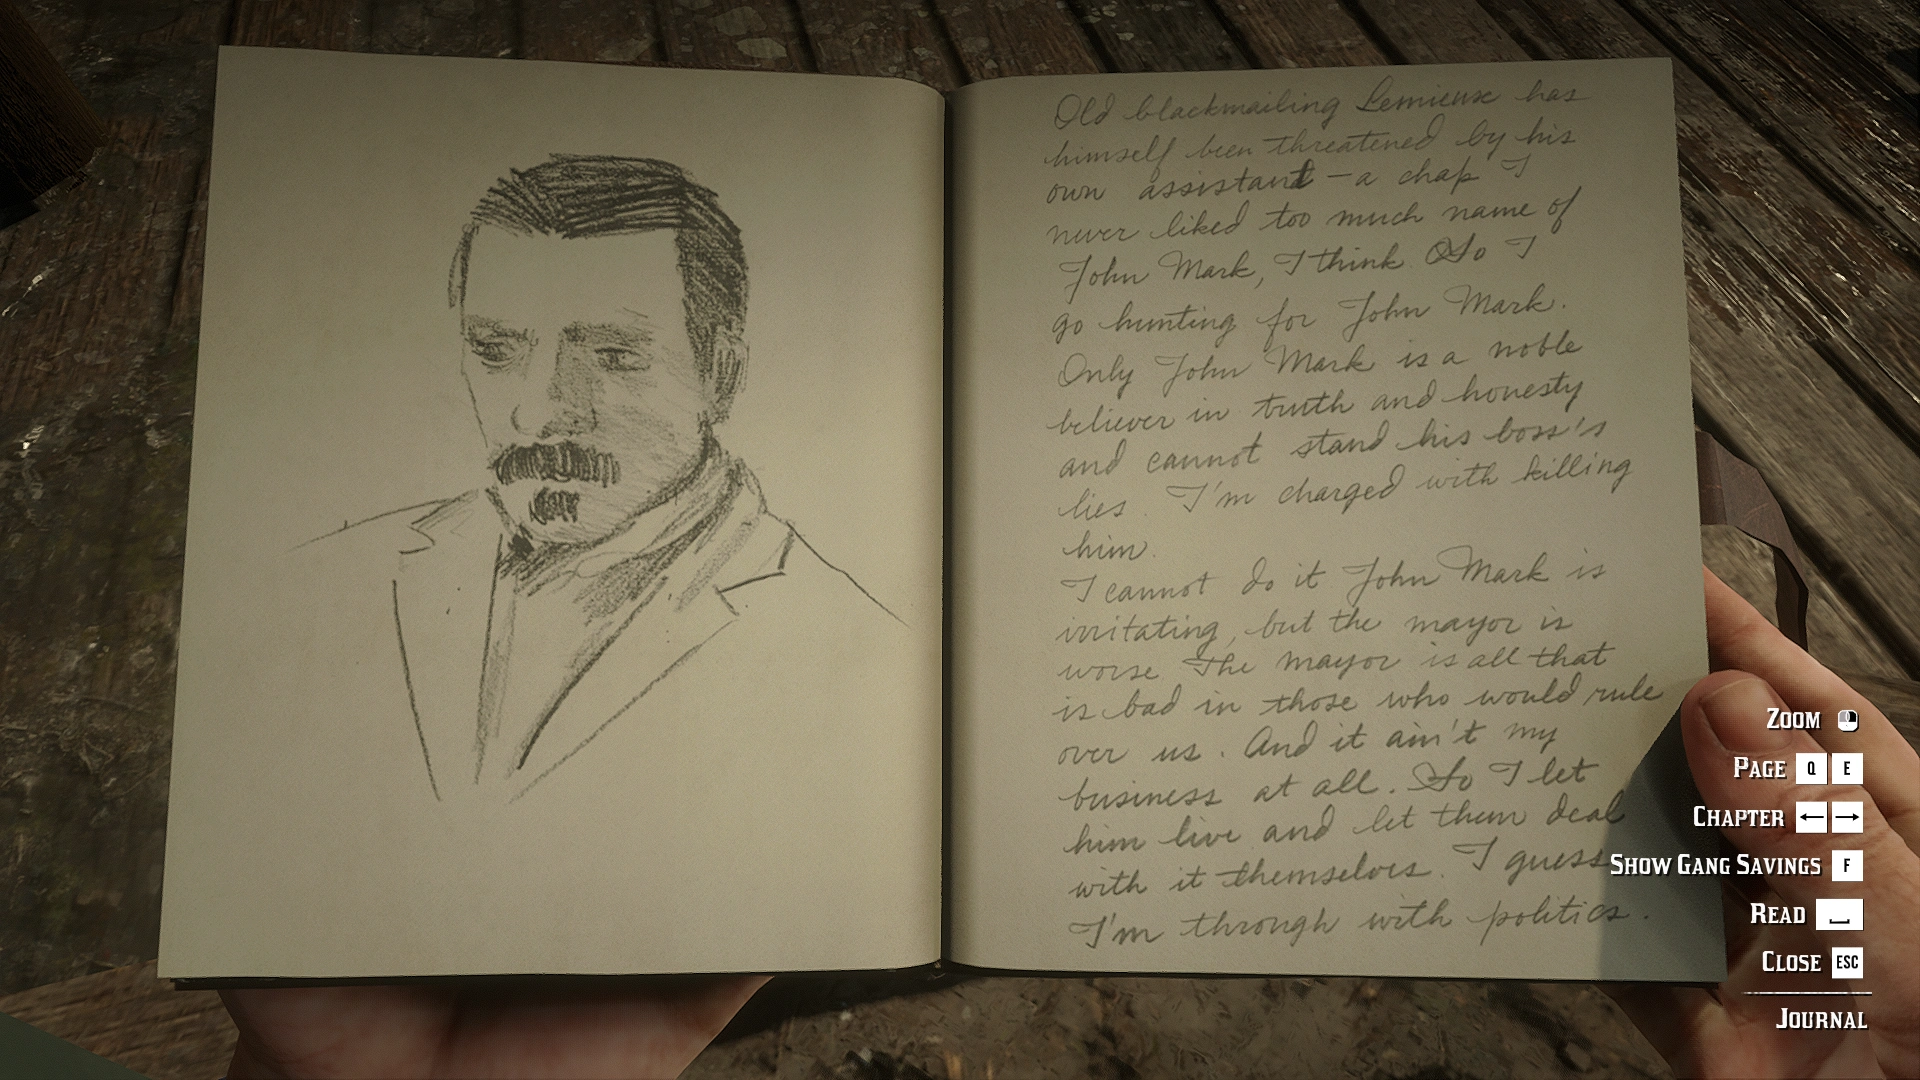 Old blackmailing Lemieux has
himself been threatened by his
own assistant – a chap I
never liked too much name of
John Mark, I think So I
go hunting for John Mark.
Only John Mark is a noble
believer in truth and honesty
and cannot stand his boss's
lies. I'm charged with killing
him.
I cannot do it John Mark is
irritating, but the mayor is
worse. The mayor is all that
is bad in those who would rule
over us. And it ain't my
business at all. So I let
him live and let them deal
with it themselves. I guess
I'm through with politics.
ZOOM
PAGE Q E
CHAPTER ← →
SHOW GANG SAVINGS F
READ
CLOSE ESC
JOURNAL